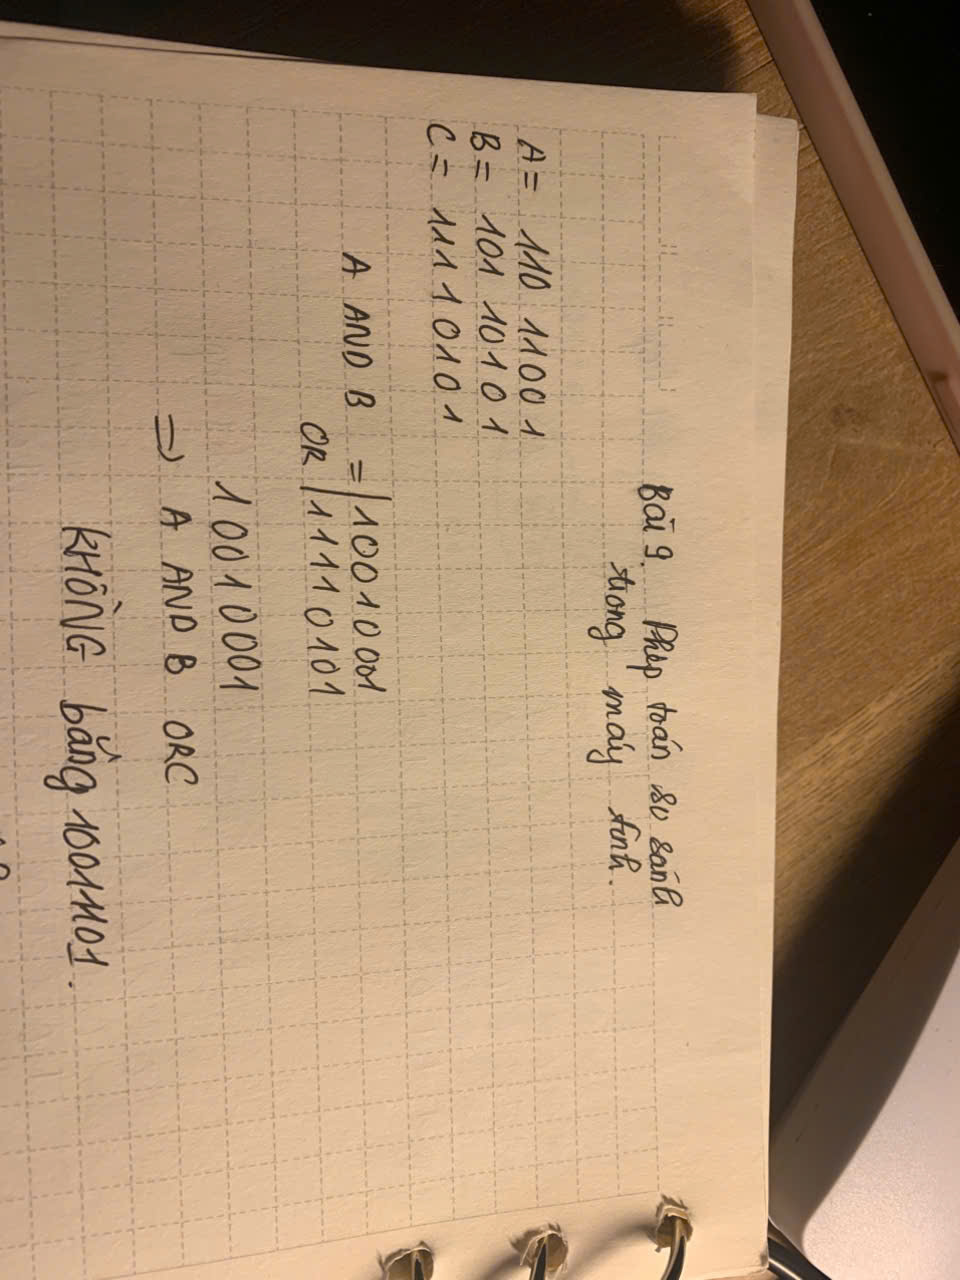 Bài 9. Phép toán so sánh
trong máy tính.
A = 110 11001
B = 101 10101
C = 111 10101
A AND B = 10010001
OR 11110101
10010001
⇒ A AND B OR C
KHÔNG bằng 10011101.